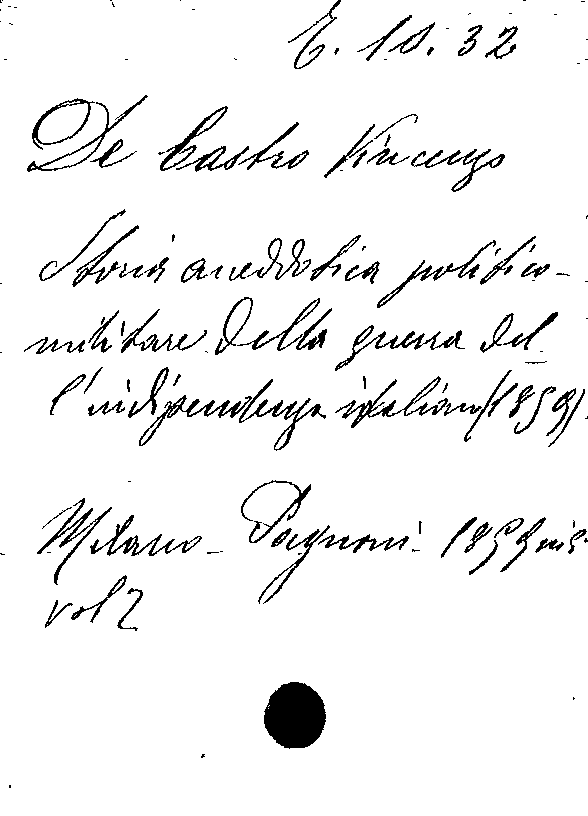 E. 10. 32
De Castro Vincenzo
Storia aneddotica politico-
militare della guerra del
l'indipendenza italiana (1859)
Milano - Pagnoni - 1859
vol 2